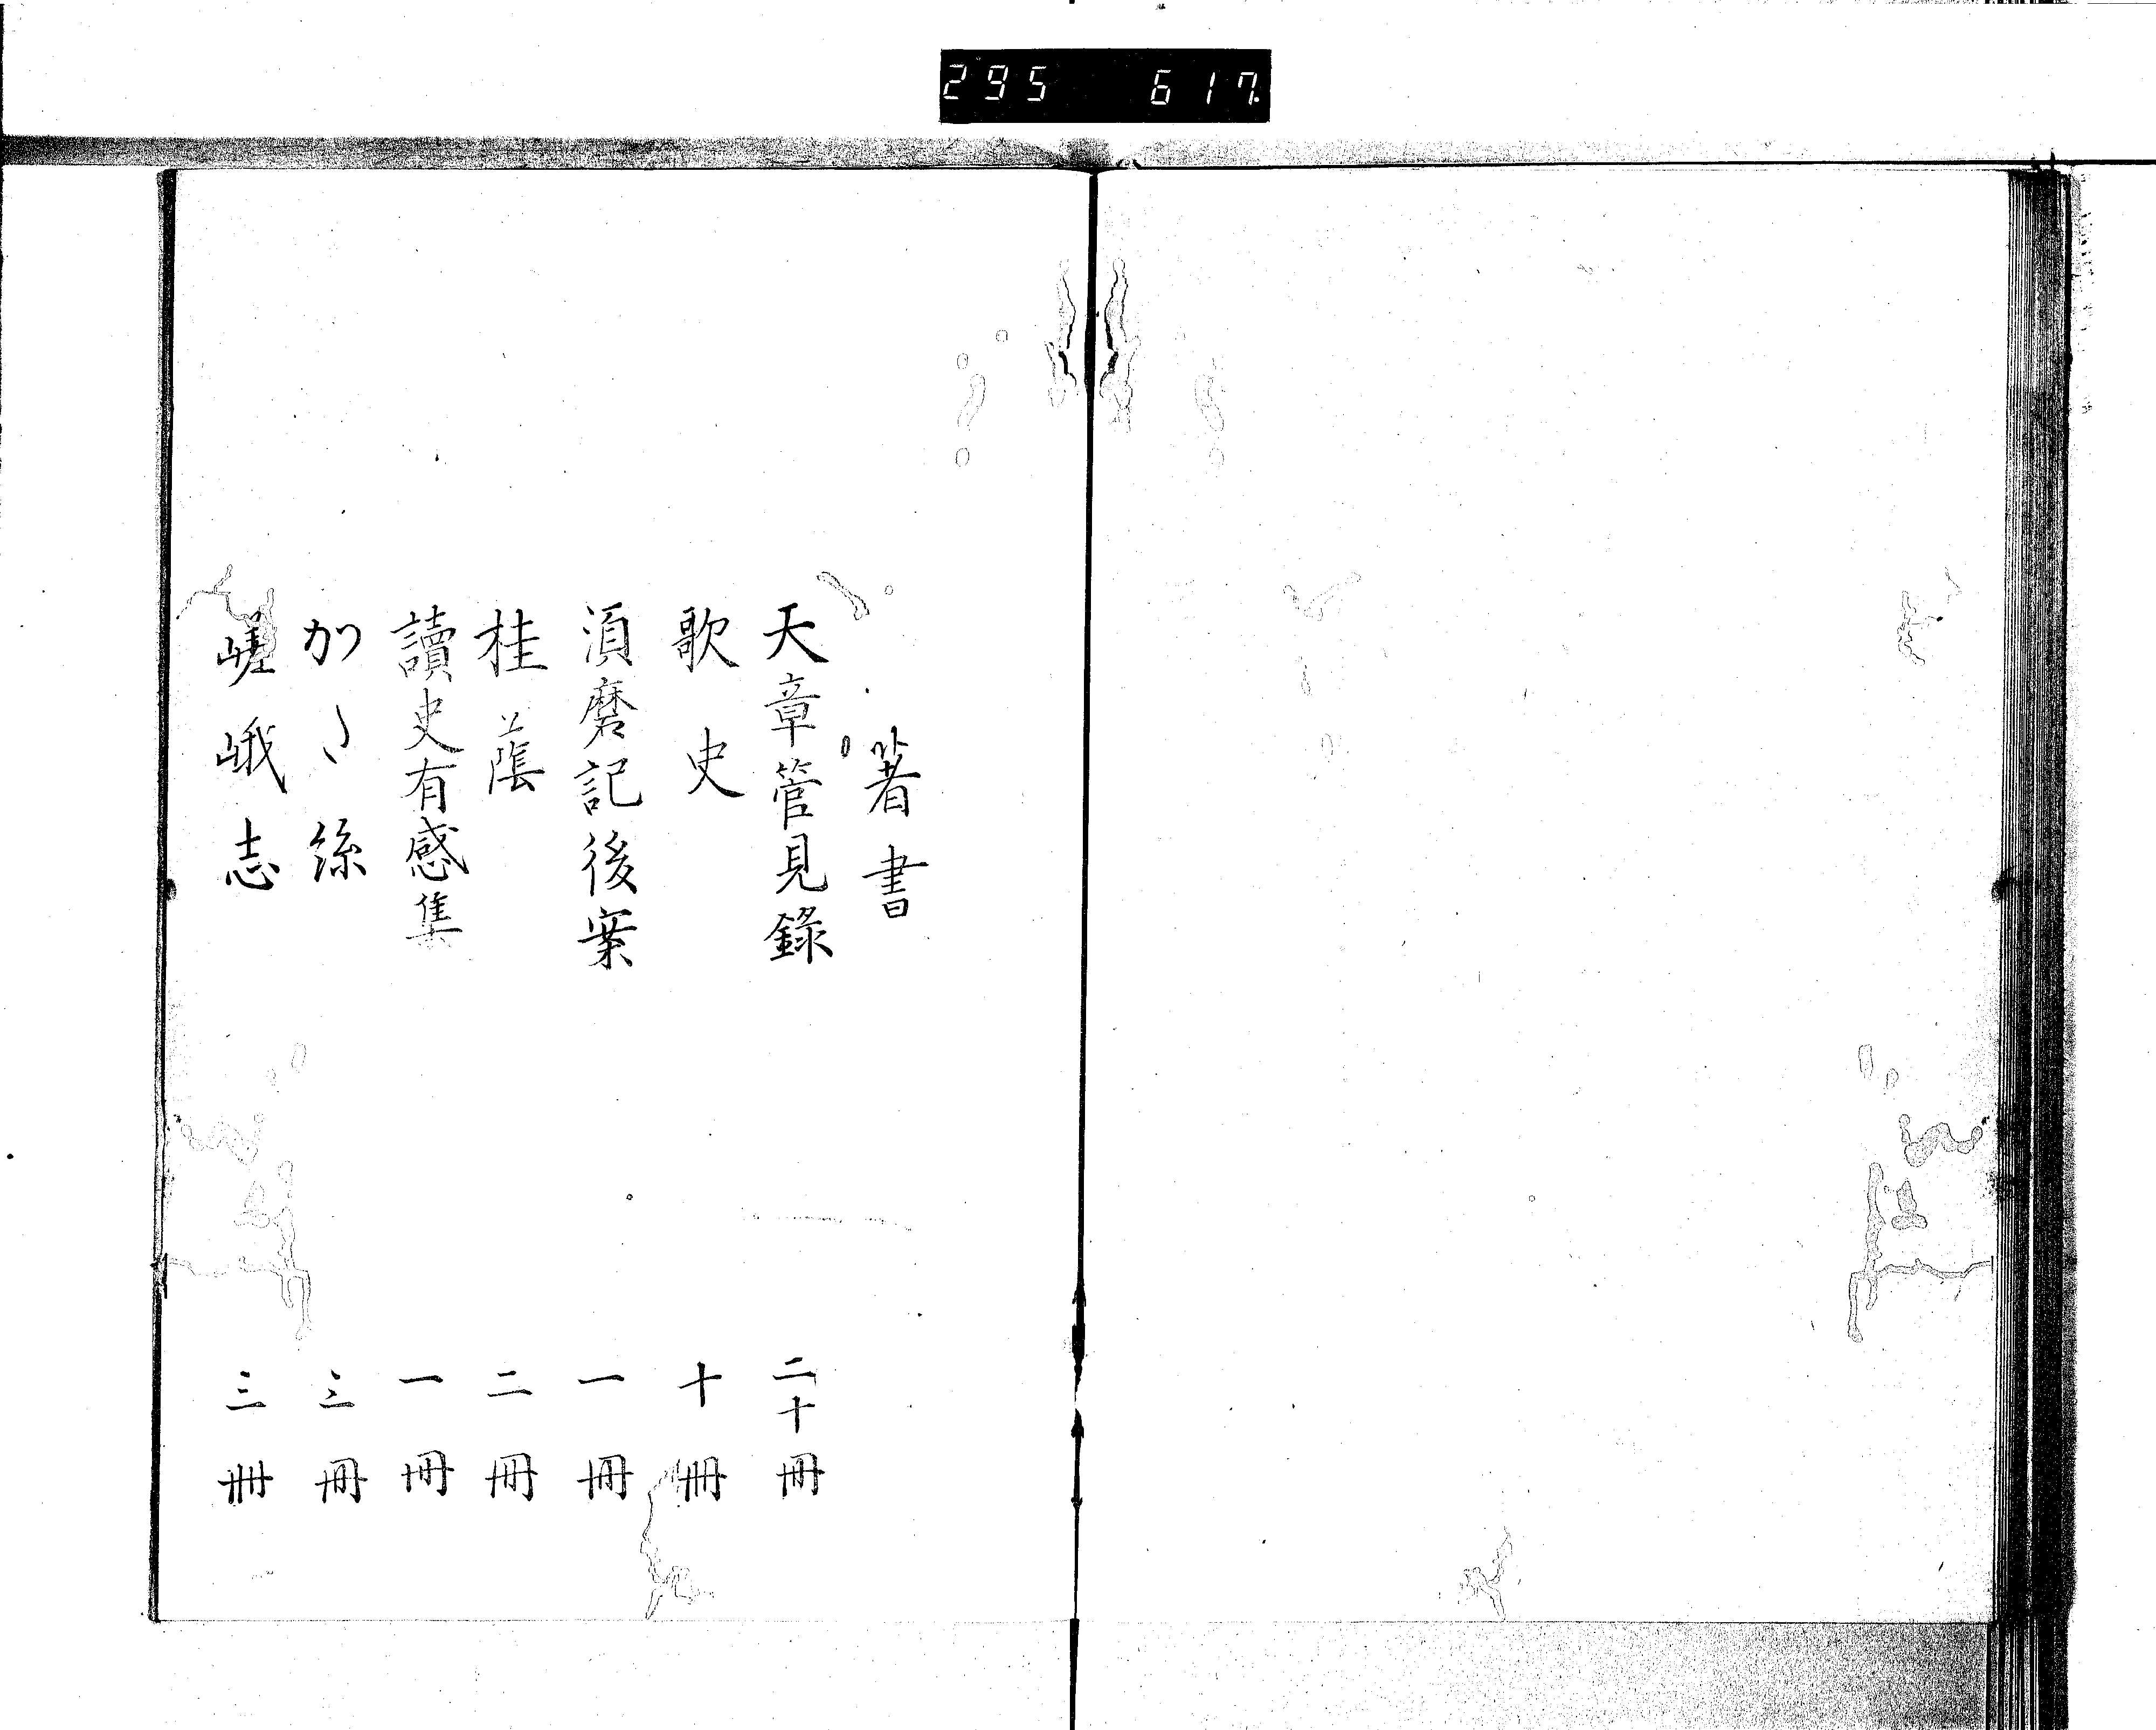 295 617
著書
天章管見錄 二十冊
歌史 十冊
須磨記後案 一冊
桂蔭 二冊
讀史有感集 一冊
かゝ絲 三冊
嵯峨志 三冊